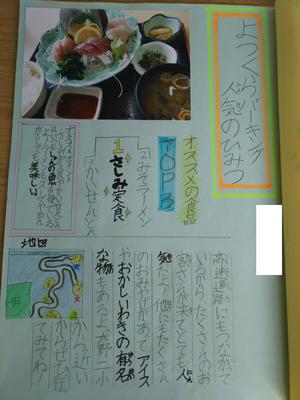 よつくらパーキング
人気のひみつ
オススメの食品
TOP3
1
さしみ定食
2みそラーメン
3かいせんどん
オススメポイント
しゅんの魚
美味しい
地図
田
高速道路にもつながって
いるから、たくさんのお
客さんが来てとても人
気だよ。他にもたくさん
のおみせがあってアイス
やおかしいわきの有名
な物もあるよ。大野一小
から近い
からぜひ行っ
てみてね!